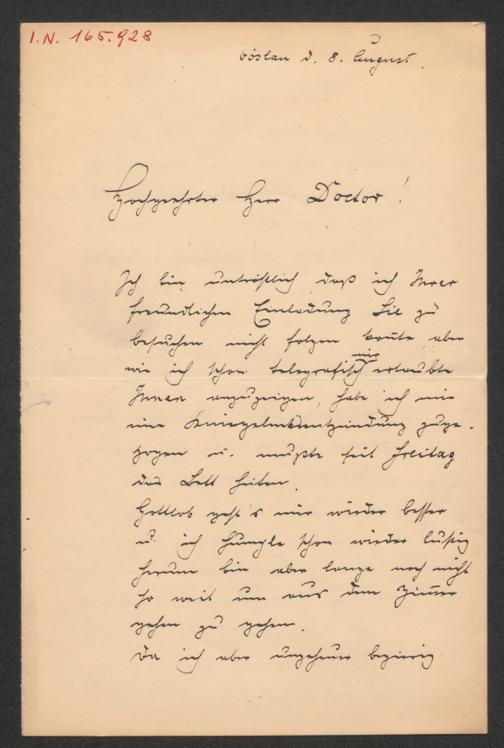 I.N. 165.928
Vöslau d. 8. August.
Hochgeehrter Herr Doctor!
Ich bin untröstlich daß ich Ihrer
freundlichen Einladung Sie zu
besuchen nicht folgen konte aber
wie ich schon telegrafisch mir erlaubte
Ihnen anzuzeigen, habe ich mir
eine Kniegelenksentzündung zuge-
zogen u. mußte seit Freitag
das Bett hüten.
Gottlob geht's mir wieder besser
u. ich humple schon wieder lustig
herum bin aber lange noch nicht
so weit um aus dem Zimmer
gehen zu gehen.
Da ich aber ungeheuer begierig